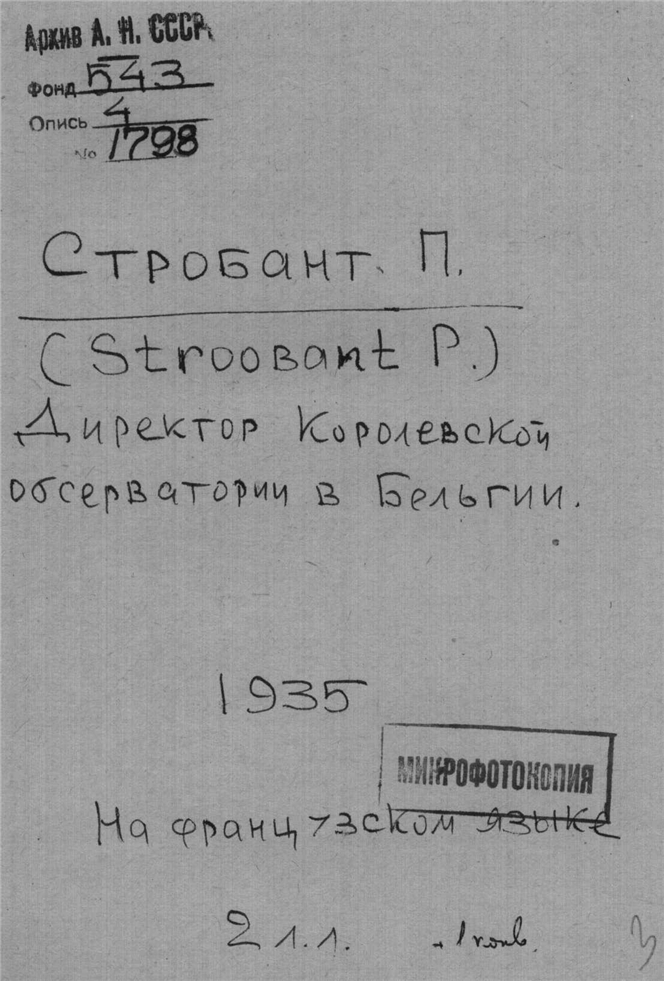 Архив А. Н. СССР
Фонд 543
Опись 4
№ 1798
Стробант. П.
(Stroobant P.)
Директор Королевской
обсерватории в Бельгии.
1935
МИКРОФОТОКОПИЯ
На французском языке
2 л.л. + 1 конв.